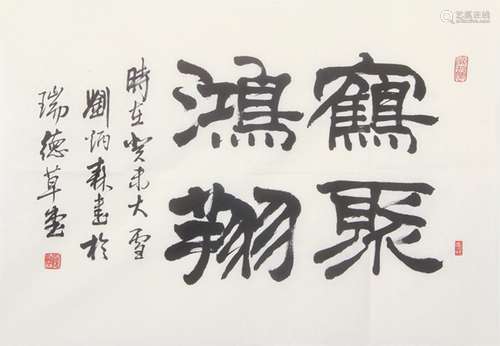 鶴聚
鴻翔
時在癸未大雪
劉炳森書於
瑞德草堂